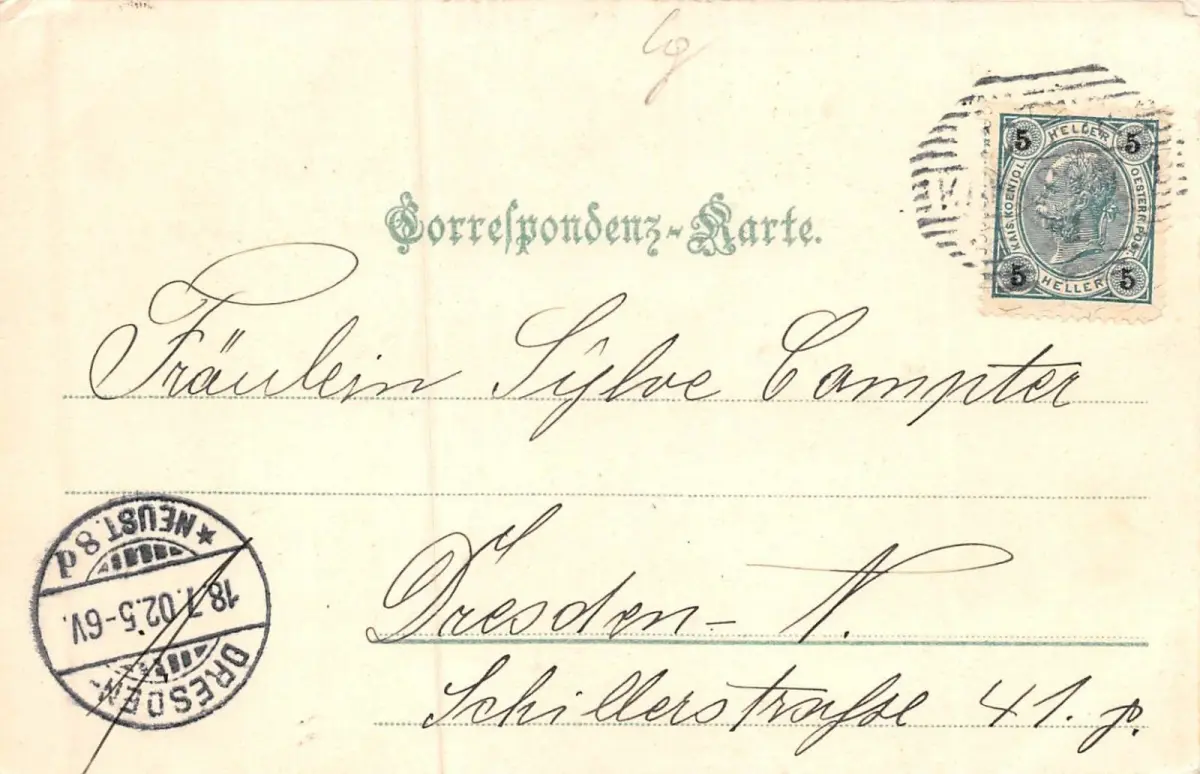 Correspondenz-Karte.
5 HELLER 5
KAIS. KOENIGL. OESTERR. POST.
5 HELLER 5
Fräulein Sylve Compter
Dresden-N.
Schillerstraße 41. p.
DRESDEN-
18.7.02.5-6V.
*NEUST.8d